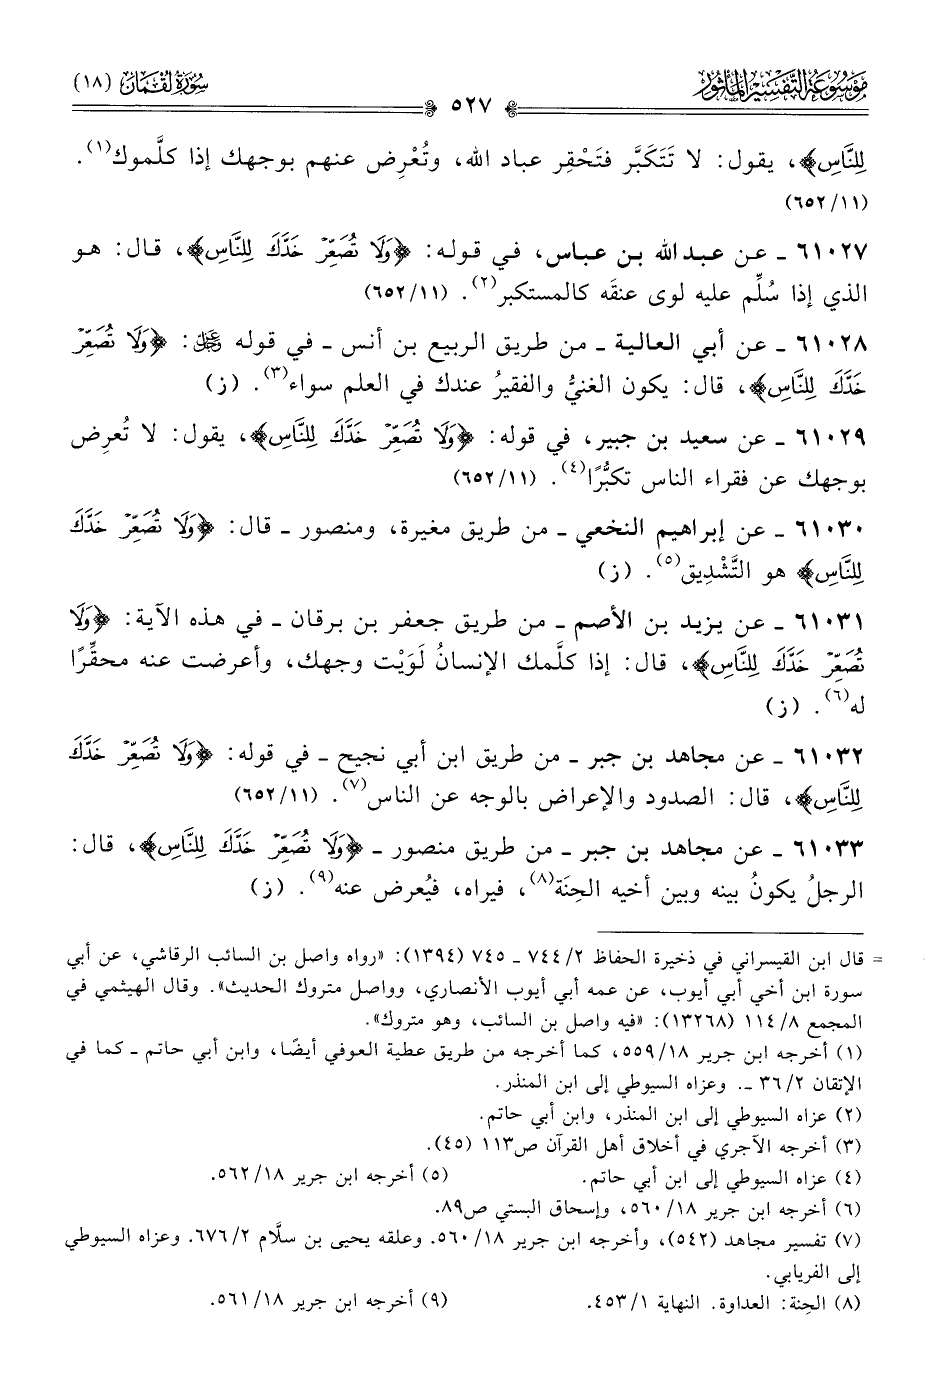 مَوْسُوعَةُ التَّفْسِيْرِ المَأْثُورِ
٥٢٧
سُورَةُ لُقْمَان (١٨)
لِلنَّاسِ﴾، يقول: لا تَتَكَبَّر فتَحْقِر عباد الله، وتُعْرِض عنهم بوجهك إذا كلَّموك(١).
(٦٥٢/١١)
٦١٠٢٧ ـ عن عبدالله بن عباس، في قوله: ﴿وَلَا تُصَعِّرْ خَدَّكَ لِلنَّاسِ﴾، قال: هو
الذي إذا سُلِّم عليه لوى عنقَه كالمستكبر(٢). (٦٥٢/١١)
٦١٠٢٨ ـ عن أبي العالية ـ من طريق الربيع بن أنس ـ في قوله ﷿: ﴿وَلَا تُصَعِّرْ
خَدَّكَ لِلنَّاسِ﴾، قال: يكون الغنيُّ والفقيرُ عندك في العلم سواء(٣). (ز)
٦١٠٢٩ ـ عن سعيد بن جبير، في قوله: ﴿وَلَا تُصَعِّرْ خَدَّكَ لِلنَّاسِ﴾، يقول: لا تُعرِض
بوجهك عن فقراء الناس تكبُّرًا(٤). (٦٥٢/١١)
٦١٠٣٠ ـ عن إبراهيم النخعي ـ من طريق مغيرة، ومنصور ـ قال: ﴿وَلَا تُصَعِّرْ خَدَّكَ
لِلنَّاسِ﴾ هو التَّشْدِيق(٥). (ز)
٦١٠٣١ ـ عن يزيد بن الأصم ـ من طريق جعفر بن برقان ـ في هذه الآية: ﴿وَلَا
تُصَعِّرْ خَدَّكَ لِلنَّاسِ﴾، قال: إذا كلَّمك الإنسانُ لَوَيْت وجهك، وأعرضت عنه محقِّرًا
له(٦). (ز)
٦١٠٣٢ ـ عن مجاهد بن جبر ـ من طريق ابن أبي نجيح ـ في قوله: ﴿وَلَا تُصَعِّرْ خَدَّكَ
لِلنَّاسِ﴾، قال: الصدود والإعراض بالوجه عن الناس(٧). (٦٥٢/١١)
٦١٠٣٣ ـ عن مجاهد بن جبر ـ من طريق منصور ـ ﴿وَلَا تُصَعِّرْ خَدَّكَ لِلنَّاسِ﴾، قال:
الرجلُ يكونُ بينه وبين أخيه الحِنَة(٨)، فيراه، فيُعرض عنه(٩). (ز)
= قال ابن القيسراني في ذخيرة الحفاظ ٢/ ٧٤٤ ـ ٧٤٥ (١٣٩٤): «رواه واصل بن السائب الرقاشي، عن أبي
سورة ابن أخي أبي أيوب، عن عمه أبي أيوب الأنصاري، وواصل متروك الحديث». وقال الهيثمي في
المجمع ٨/ ١١٤ (١٣٢٦٨): «فيه واصل بن السائب، وهو متروك».
(١) أخرجه ابن جرير ١٨/ ٥٥٩، كما أخرجه من طريق عطية العوفي أيضًا، وابن أبي حاتم ـ كما في
الإتقان ٢/ ٣٦ ـ. وعزاه السيوطي إلى ابن المنذر.
(٢) عزاه السيوطي إلى ابن المنذر، وابن أبي حاتم.
(٣) أخرجه الآجري في أخلاق أهل القرآن ص١١٣ (٤٥).
(٤) عزاه السيوطي إلى ابن أبي حاتم. (٥) أخرجه ابن جرير ١٨/ ٥٦٢.
(٦) أخرجه ابن جرير ١٨/ ٥٦٠، وإسحاق البستي ص٨٩.
(٧) تفسير مجاهد (٥٤٢)، وأخرجه ابن جرير ١٨/ ٥٦٠. وعلقه يحيى بن سلَّام ٢/ ٦٧٦. وعزاه السيوطي
إلى الفريابي.
(٨) الحِنة: العداوة. النهاية ١/ ٤٥٣. (٩) أخرجه ابن جرير ١٨/ ٥٦١.